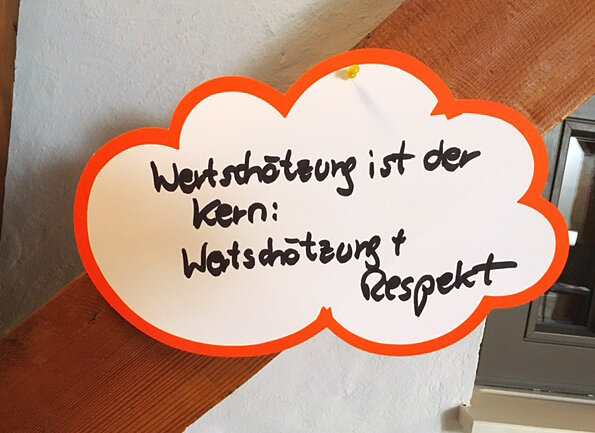 Wertschätzung ist der
Kern:
Wertschätzung +
Respekt